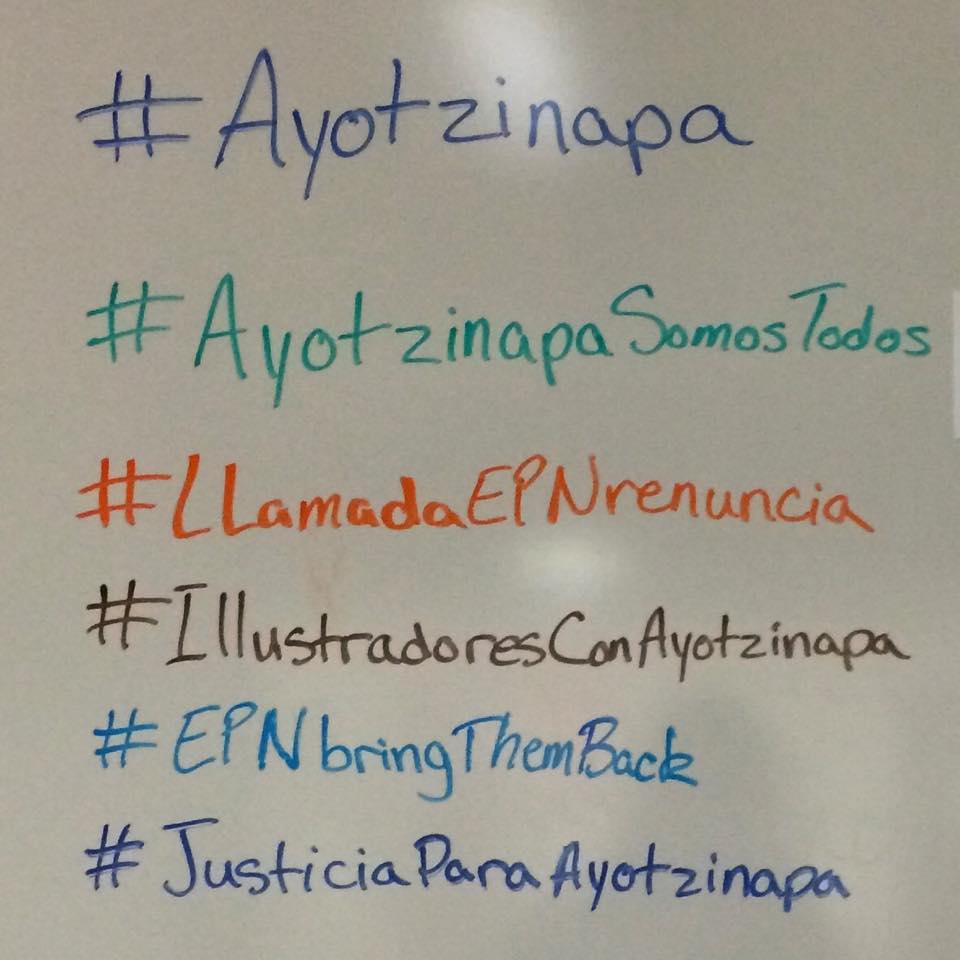 #Ayotzinapa
#AyotzinapaSomosTodos
#LLamadaEPNrenuncia
#IllustradoresConAyotzinapa
#EPNbringThemBack
#JusticiaParaAyotzinapa